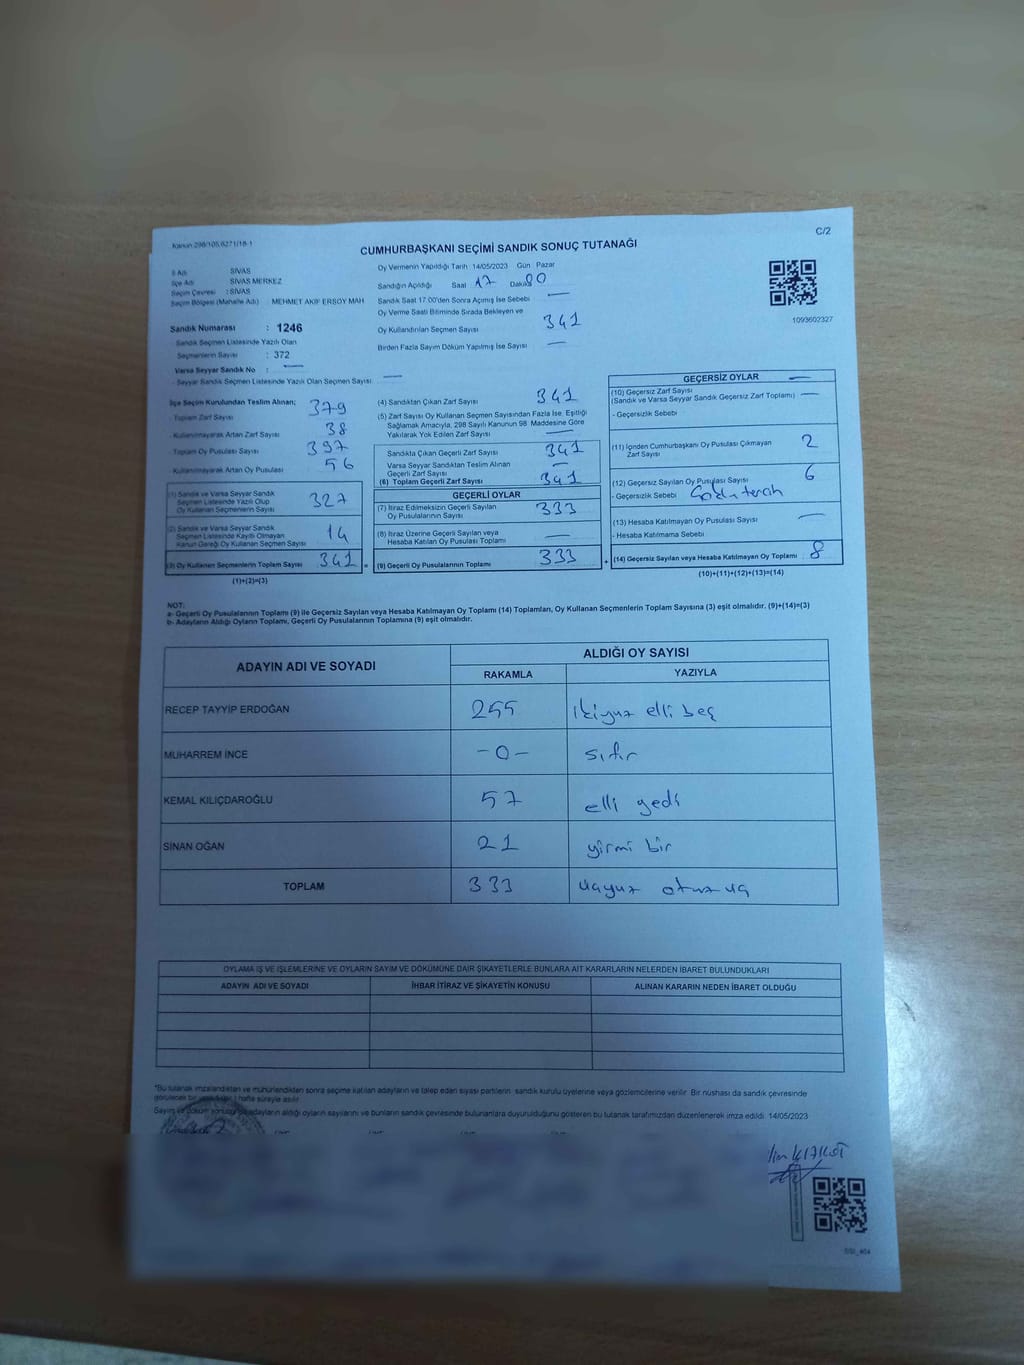 Kanun:298/105,6271/18-1
C/2
CUMHURBAŞKANI SEÇİMİ SANDIK SONUÇ TUTANAĞI
İl Adı SİVAS
İlçe Adı SİVAS MERKEZ
Seçim Çevresi : SİVAS
Seçim Bölgesi (Mahalle Adı) : MEHMET AKİF ERSOY MAH
Sandık Numarası : 1246
Sandık Seçmen Listesinde Yazılı Olan
Seçmenlerin Sayısı : 372
Varsa Seyyar Sandık No : —
- Seyyar Sandık Seçmen Listesinde Yazılı Olan Seçmen Sayısı: —
Oy Vermenin Yapıldığı Tarih 14/05/2023 Gün Pazar
Sandığın Açıldığı Saat 17 Dakika 00
Sandık Saat 17.00'den Sonra Açımış İse Sebebi —
Oy Verme Saati Bitiminde Sırada Bekleyen ve
Oy Kullandırılan Seçmen Sayısı 341
Birden Fazla Sayım Döküm Yapılmış İse Sayısı —
1093602327
İlçe Seçim Kurulundan Teslim Alınan;
- Toplam Zarf Sayısı 379
- Kullanılmayarak Artan Zarf Sayısı 38
- Toplam Oy Pusulası Sayısı 397
- Kullanılmayarak Artan Oy Pusulası 56
(1) Sandık ve Varsa Seyyar Sandık
Seçmen Listesinde Yazılı Olup
Oy Kullanan Seçmenlerin Sayısı 327
(2) Sandık ve Varsa Seyyar Sandık
Seçmen Listesinde Kayıtlı Olmayan
Kanun Gereği Oy Kullanan Seçmen Sayısı 14
(3) Oy Kullanan Seçmenlerin Toplam Sayısı 341 =
(1)+(2)=(3)
(4) Sandıktan Çıkan Zarf Sayısı 341
(5) Zarf Sayısı Oy Kullanan Seçmen Sayısından Fazla İse, Eşitliği
Sağlamak Amacıyla, 298 Sayılı Kanunun 98. Maddesine Göre
Yakılarak Yok Edilen Zarf Sayısı —
Sandıkta Çıkan Geçerli Zarf Sayısı 341
Varsa Seyyar Sandıktan Teslim Alınan
Geçerli Zarf Sayısı —
(6) Toplam Geçerli Zarf Sayısı 341
GEÇERLİ OYLAR
(7) İtiraz Edilmeksizin Geçerli Sayılan
Oy Pusulalarının Sayısı 333
(8) İtiraz Üzerine Geçerli Sayılan veya
Hesaba Katılan Oy Pusulası Toplamı —
(9) Geçerli Oy Pusulalarının Toplamı 333 +
GEÇERSİZ OYLAR —
(10) Geçersiz Zarf Sayısı
(Sandık ve Varsa Seyyar Sandık Geçersiz Zarf Toplamı) —
- Geçersizlik Sebebi
(11) İçinden Cumhurbaşkanı Oy Pusulası Çıkmayan
Zarf Sayısı 2
(12) Geçersiz Sayılan Oy Pusulası Sayısı 6
- Geçersizlik Sebebi
(13) Hesaba Katılmayan Oy Pusulası Sayısı —
- Hesaba Katılmama Sebebi
(14) Geçersiz Sayılan veya Hesaba Katılmayan Oy Toplamı : 8
(10)+(11)+(12)+(13)=(14)
NOT:
a- Geçerli Oy Pusulalarının Toplamı (9) ile Geçersiz Sayılan veya Hesaba Katılmayan Oy Toplamı (14) Toplamları, Oy Kullanan Seçmenlerin Toplam Sayısına (3) eşit olmalıdır. (9)+(14)=(3)
b- Adayların Aldığı Oyların Toplamı, Geçerli Oy Pusulalarının Toplamına (9) eşit olmalıdır.
ADAYIN ADI VE SOYADI ALDIĞI OY SAYISI
RAKAMLA YAZIYLA
RECEP TAYYİP ERDOĞAN 255 ikiyüz elli beş
MUHARREM İNCE -0- sıfır
KEMAL KILIÇDAROĞLU 57 elli yedi
SİNAN OĞAN 21 yirmi bir
TOPLAM 333 üçyüz otuz üç
OYLAMA İŞ VE İŞLEMLERİNE VE OYLARIN SAYIM VE DÖKÜMÜNE DAİR ŞİKAYETLERLE BUNLARA AİT KARARLARIN NELERDEN İBARET BULUNDUKLARI
ADAYIN ADI VE SOYADI İHBAR İTİRAZ VE ŞİKAYETİN KONUSU ALINAN KARARIN NEDEN İBARET OLDUĞU
*Bu tutanak imzalandıktan ve mühürlendikten sonra seçime katılan adayların ve talep eden siyasi partilerin sandık kurulu üyelerine veya gözlemcilerine verilir. Bir nüshası da sandık çevresinde
görülecek bir hafta süreyle asılır.
Sayım ve döküm sonucu adayların aldığı oyların sayılarını ve bunların sandık çevresinde bulunanlara duyurulduğunu gösteren bu tutanak tarafımızdan düzenlenerek imza edildi. 14/05/2023